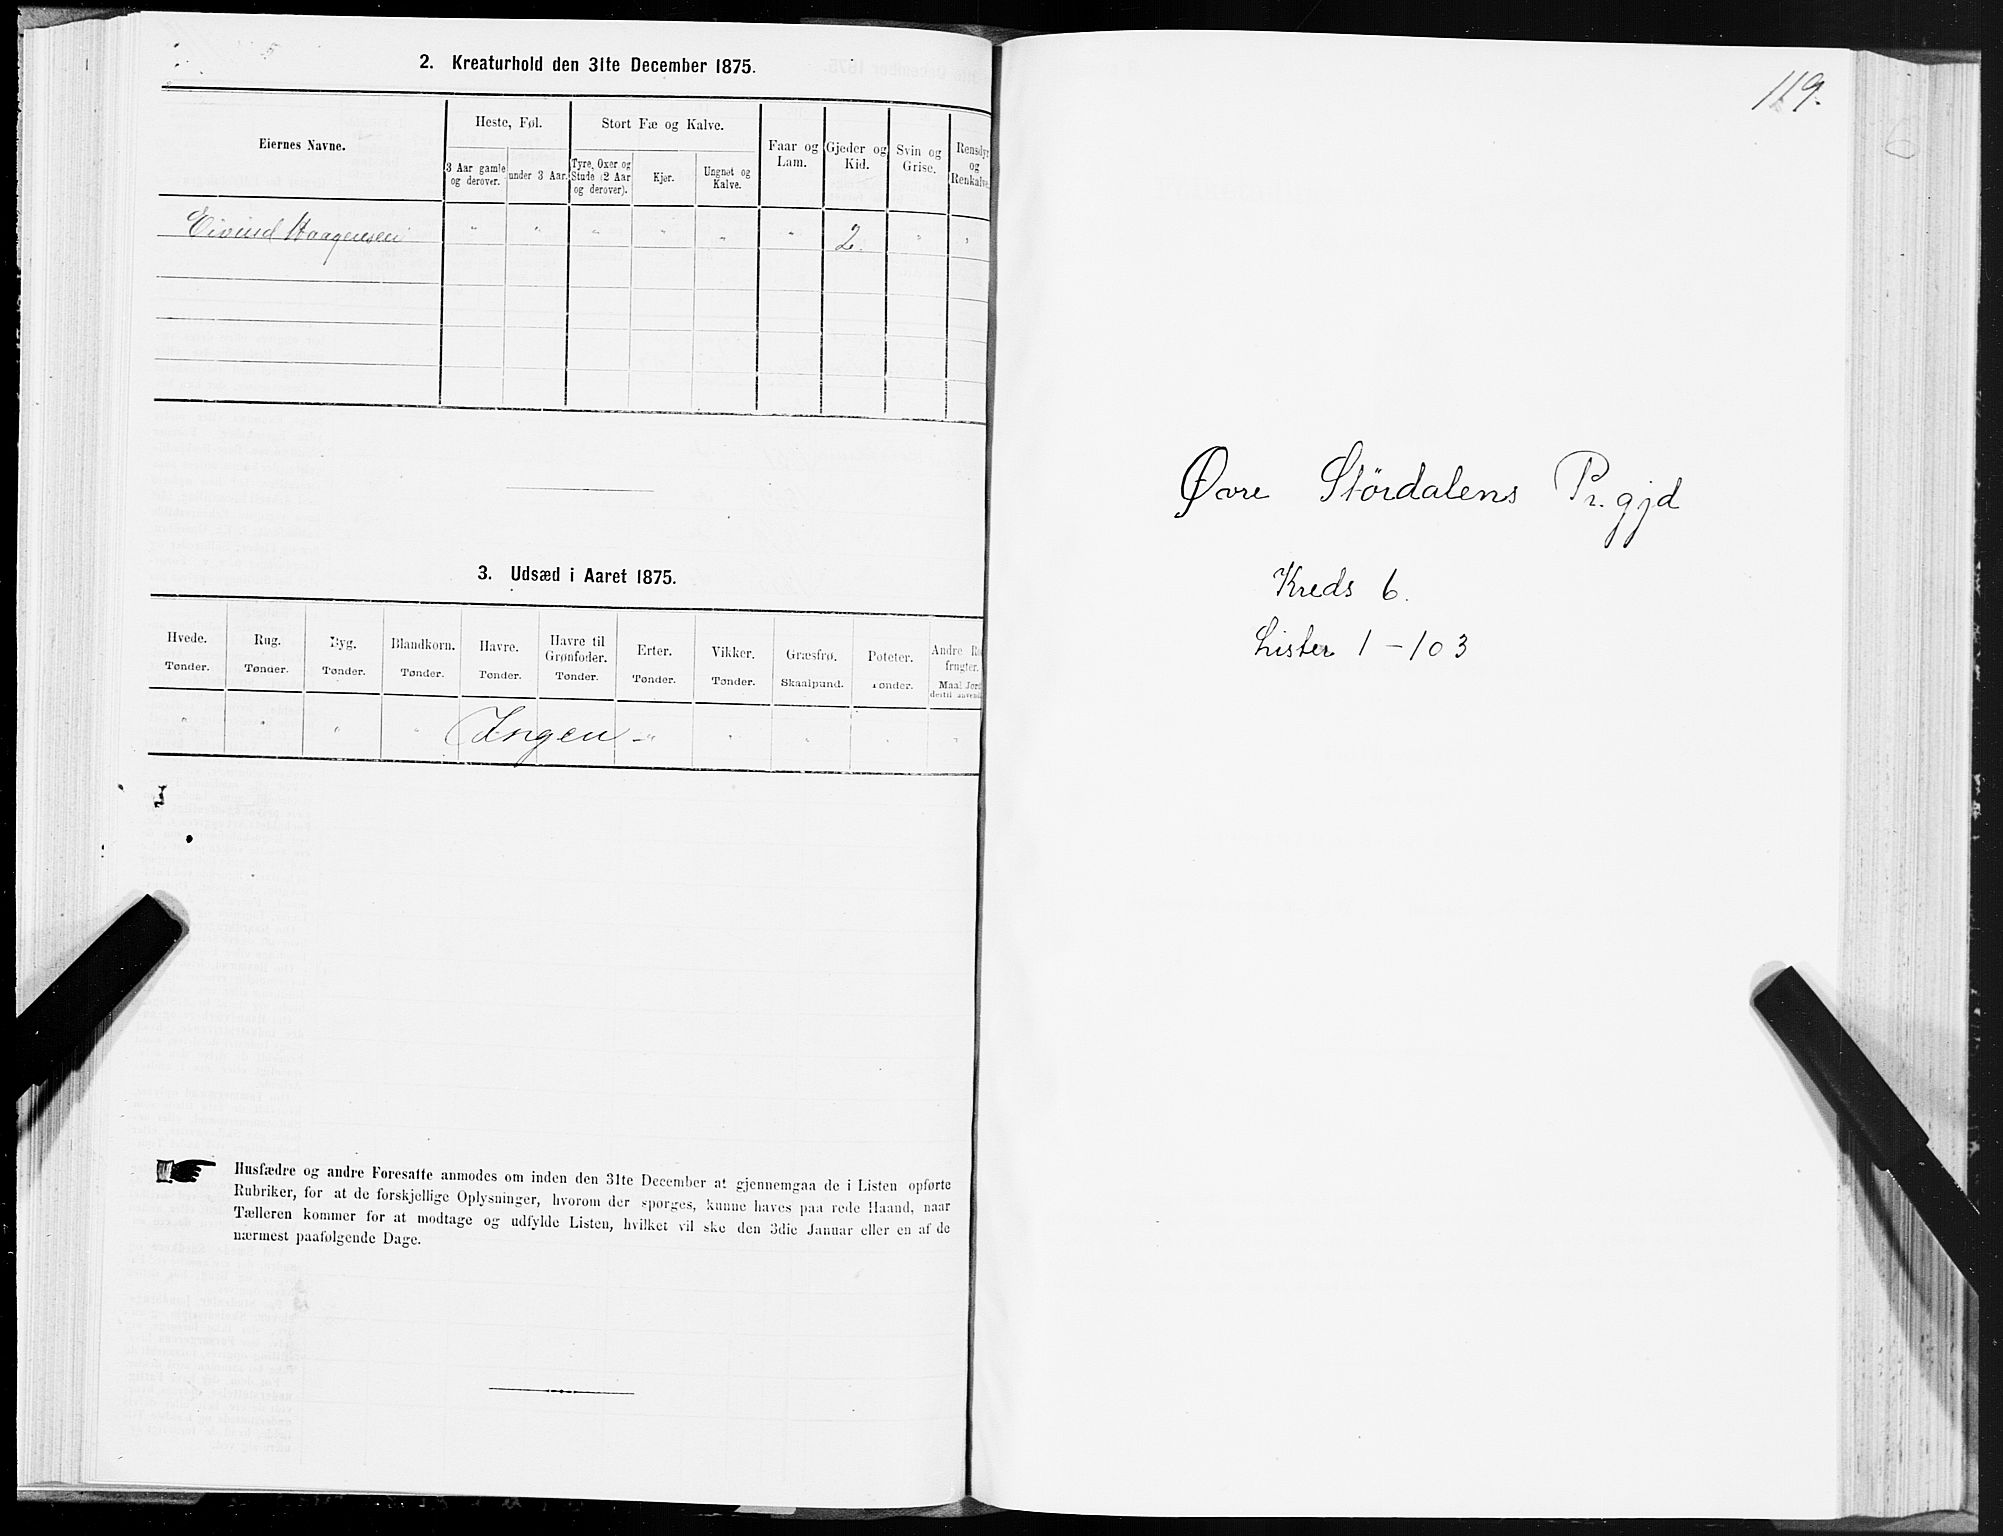 2. Kreaturhold den 31te December 1875.
Eiernes Navne.
Heste, Føl.
3 Aar gamle og derover.
under 3 Aar.
Stort Fæ og Kalve.
Tyre, Oxer og Stude (2 Aar og derover).
Kjør.
Ungnøt og Kalve.
Faar og Lam.
Gjeder og Kid.
Svin og Grise.
Rensdyr og Renkalve.
Eivind Haagensen " " " " " " 2. " "
3. Udsæd i Aaret 1875.
Hvede. Rug. Byg. Blandkorn. Havre. Havre til Grønfoder. Erter. Vikker. Græsfrø. Poteter. Andre Ro frugter.
Tønder. Tønder. Tønder. Tønder. Tønder. Tønder. Tønder. Tønder. Skaalpund. Tønder. Maal Jord dertil anvend
" " " " Ingen " " " " "
Husfædre og andre Foresatte anmodes om inden den 31te December at gjennemgaa de i Listen opførte
Rubriker, for at de forskjellige Oplysninger, hvorom der spørges, kunne haves paa rede Haand, naar
Tælleren kommer for at modtage og udfylde Listen, hvilket vil ske den 3die Januar eller en af de
nærmest paafølgende Dage.
119.
6
Øvre Stördalens Pr.gjd
Kreds 6.
Lister 1-103